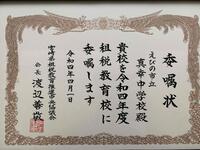 委嘱状
えびの市立
真幸中学校殿
貴校を令和四年度
租税教育校に
委嘱します
令和四年四月一日
宮崎県租税教育推進中央協議会
会長 渡辺善敬